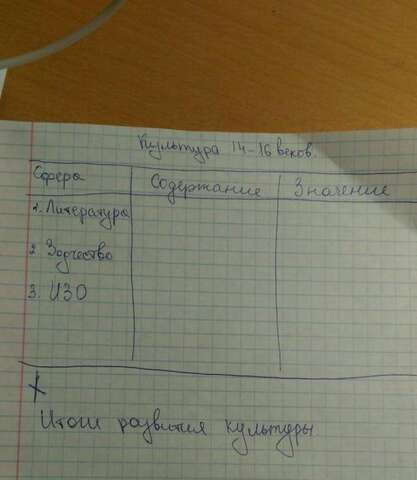 Культура 14-16 веков.
Сферы Содержание Значение
1. Литература
2 Зодчество
3. ИЗО
+
Итоги развития культуры